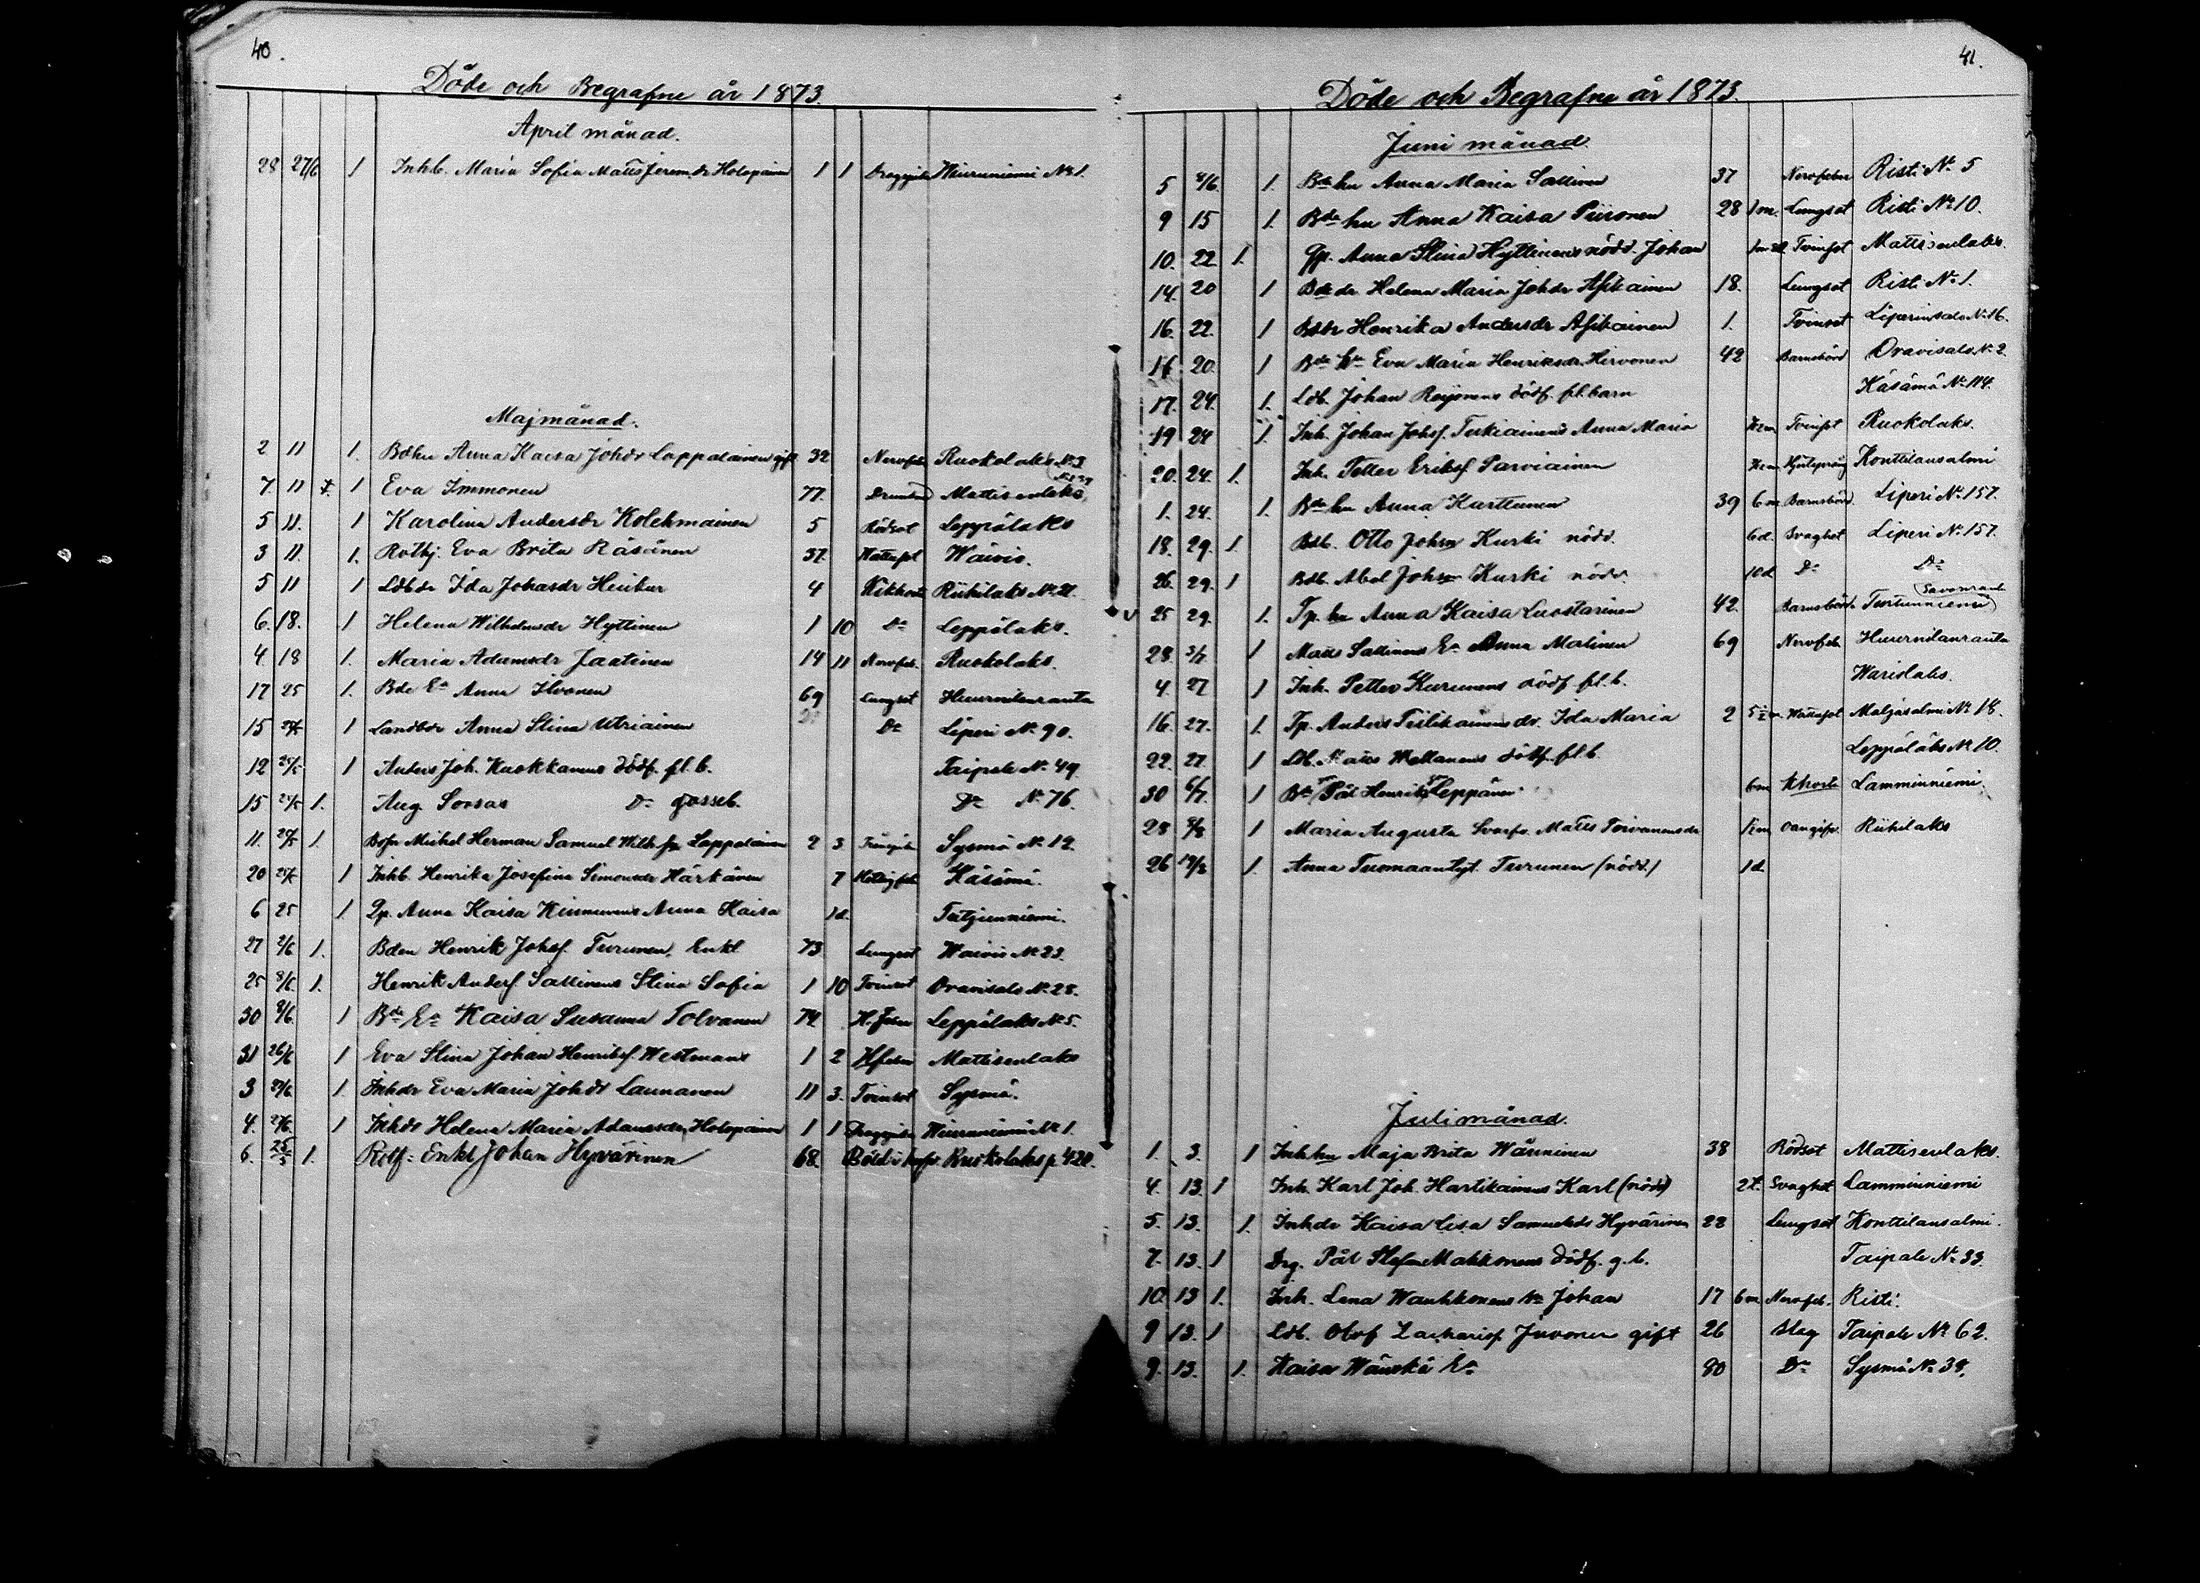 40.
Döde och Begrafne år 1873
April månad.
28 27/6 1 Inhb. Maria Sofia Matts Jerem.dr Holopainen 1 1 Hiuruniemi No 1.
Maj månad.
2 11 1. Bdhu Anna Kaisa Johdr Lappalainen gift 32 Nervfeb Ruokolaks No 3
7. 11 1 Eva Immonen 77. Mattisenlaks
5 11. 1 Karolina Andersdr Kolehmainen 5 Rödsot Leppälaks
3 11. 1. Rothj. Eva Brita Räsänen 37. Wattusot Waivio.
5 11 1 Ldbdr Ida Johansdr Heiskar 4 Kikhosta Riihilaks No 21.
6. 18. 1 Helena Wilhelmsdr Hyttinen 1 10 Do Leppälaks.
4. 18 1. Maria Adamsdr Jaatinen 14 11 Nervfeb. Ruokolaks.
17 25 1. Bde Ea Anna Ilvonen 69 Lungsot Huurnilanranta
15 1 Landbdr Anna Stina Utriainen Do Liperi No 90.
12 25/5 1 Anders Joh. Kuokkanens dödf. fl.b. Taipale No 49.
15 1. Aug. Sorsas Do gosseb. Do No 76.
11. 1. Mikel Herman Samuel Wilh. Lappalainen 2 3 Sysmä No 12.
20 25/5 1 Inhb. Henrika Josefina Simonsdr Härkänen 7 Käsämä.
6 25 1 Anna Kaisa Kinnunens Anna Kaisa 1d. Tutjunniemi.
27 2/6 1. Bden Henrik Johsf. Turunen, Enkl 73 Lungsot Waivio No 23.
25 8/6 1. Henrik Andersf. Sallinens Stina Sofia 1 10 Tvinsot Oravisalo No 28.
30 8/6. 1 Bde Ea Kaisa Susanna Tolvanen 74 Leppälaks No 5.
31 26/6 1 Eva Stina Johan Henriksf Westmans 1 2 Mattisenlaks
3 1 Inhdr Eva Maria Johdr Launanen 11 3. Tvinsot Sysmä.
4. 1 Inhdr Helena Maria Adamsdr Holopainen 1 1 Hiuruniemi No 1.
6. 25/5 1. Rotf. Enkl Johan Hyvärinen 68. Ruokolaks p. 420.
41.
Döde och Begrafne år 1873.
Juni månad.
5 8/6. 1. Bde hu Anna Maria Sallinen 37 Nervfeber Risti No 5
9 15 1. Bde hu Anna Kaisa Piironen 28 1m. Lungsot Risti No 10.
10. 22. 1. Anna Stina Hyttinens nödd. Johan Tvinsot Mattisenlaks.
14. 20 1 Bde dr Helena Maria Johdr Asikainen 18. Lungsot Risti No 1.
16. 22. 1 Bdr Henrika Andersdr Asikainen 1. Tvinsot Liperinsalo No 16.
16 20. 1 Bde Eva Maria Henriksdr Hirvonen 42 Barnsbörd Oravisalo No 2.
17. 24. 1. Ldb. Johan Reijonens dödf. fl.barn Käsämä No 114.
19 24 1. Inh. Johan Johsf. Tukiainens Anna Maria Tvinsot Ruokolaks.
20. 24. 1. Inh. Petter Eriksf Parviainen Konttilansalmi
1. 24. 1. Bde hu Anna Karttunen 39 6m Barnsbörd Liperi No 157.
18. 29. 1. Bdb. Otto Johsn Kurki nödd. 6d. Svaghet Liperi No 157.
26. 29. 1 Bdb. Abel Johsn Kurki nödd. 10d. Do Do
25 29. 1. Tp. hu Anna Kaisa Luostarinen 42. Barnsbörd Savonranta
28. 3/7 1 Matts Sallinens Ea Anna Malinen 69 Nervfeb. Huurnilanranta
4. 27 1 Inh. Petter Karunens dödf. fl.b. Wariolaks.
16. 27. 1. Tp. Anders Tiilikainens dr. Ida Maria 2 5½m Wattusot Maljasalmi No 18.
22. 27. 1 Ldb. Matts Mökkönens dödf. fl.b. Leppälaks No 10.
30 6/7. 1 Bde Pål Henriks Leppänen 6m Khosta Lamminniemi.
28 1 Maria Augusta Matts Toivanens dr Riihilaks
26 1. Anna Tuomaantyt. Turunen (nödd.) 1d.
Juli månad.
1. 3. 1 Inh.hu Maja Brita Wänninen 38 Rödsot Mattisenlaks.
4. 13. 1 Inh. Karl Joh. Hartikainens Karl (nödd) 2t. Svaghet Lamminniemi
5. 13. 1. Inhdr Kaisa Lisa Samuelsdr Hyvärinen 22 Lungsot Konttilansalmi.
7. 13. 1 Drg. Pål Stefan Makkonens dödf. g.b. Taipale No 33.
10. 13 1. Inh. Lena Wauhkonens Johan 17 6m. Nervfeb. Risti.
9 13. 1 Ldb. Olof Zacharisf Juvonen gift 26 Slag Taipale No 62.
9. 13. 1. Kaisa Wänskä Ea 80 Do Sysmä No 38.